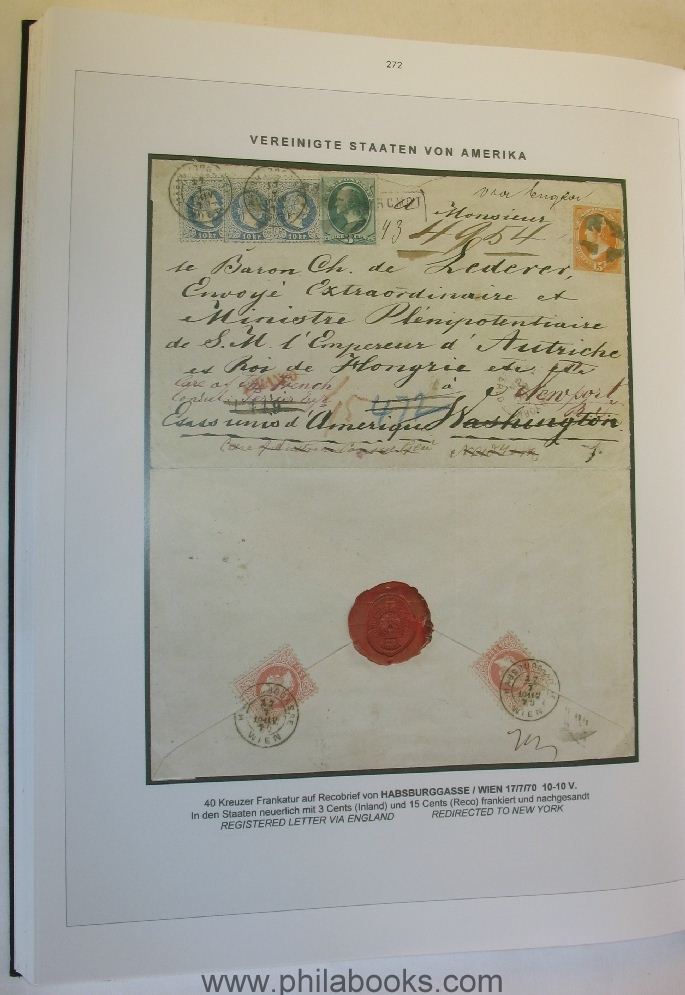 272
VEREINIGTE STAATEN VON AMERIKA
10 KR. 10 KR. 10 KR.
via England
Monsieur
93
4954
le Baron Ch. de Lederer,
Envoyé Extraordinaire et
Ministre Plénipotentiaire
de S. M. l'Empereur d'Autriche
et Roi de Hongrie etc etc
Care of the French
à Newport
15 472
Etats unis d'Amerique Washington
HABSBURGGASSE
WIEN
HABSBURGGASSE
WIEN
40 Kreuzer Frankatur auf Recobrief von HABSBURGGASSE / WIEN 17/7/70 10-10 V.
In den Staaten neuerlich mit 3 Cents (Inland) und 15 Cents (Reco) frankiert und nachgesandt
REGISTERED LETTER VIA ENGLAND REDIRECTED TO NEW YORK
www.philabooks.com